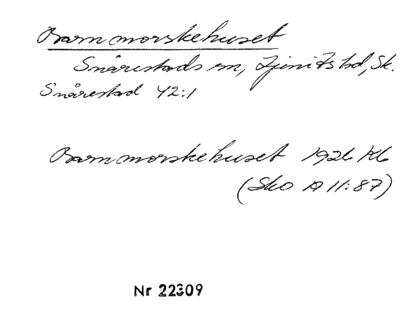 Barnmorskehuset
Snårestads sn, Ljunits hd, Sk.
Snårestad 42:1
Barnmorskehuset 1926 Kb
(Sko A 11:87)
Nr 22309